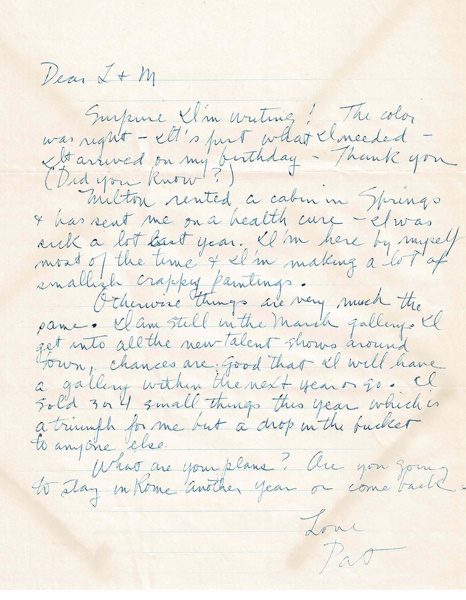 Dear L + M
Surprise I'm writing! The color
was right – It's just what I needed –
It arrived on my birthday – Thank you
(Did you know?)
Milton rented a cabin in Springs
+ has sent me on a health cure – I was
sick a lot last year. I'm here by myself
most of the time + I'm making a lot of
smallish crappy paintings.
Otherwise things are very much the
same. I am still in the March gallery. I
get into all the new talent shows around
town, chances are good that I will have
a gallery within the next year or so. I
sold 3 or 4 small things this year which is
a triumph for me but a drop in the bucket
to anyone else.
What are your plans? Are you going
to stay in Rome another year or come back –
Love
Pat